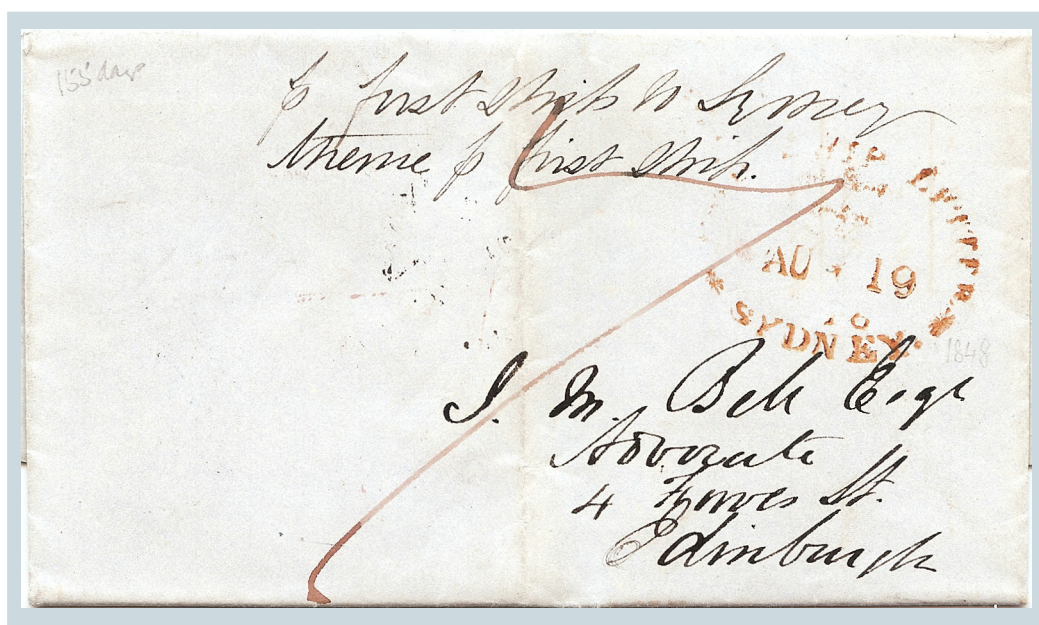 155 days
p first Ship to Sydney
thence p first Ship.
SHIP LETTER
AU * 19
SYDNEY
1848
J. M. Bell Esqr
Advocate
4 Forres St.
Edinburgh